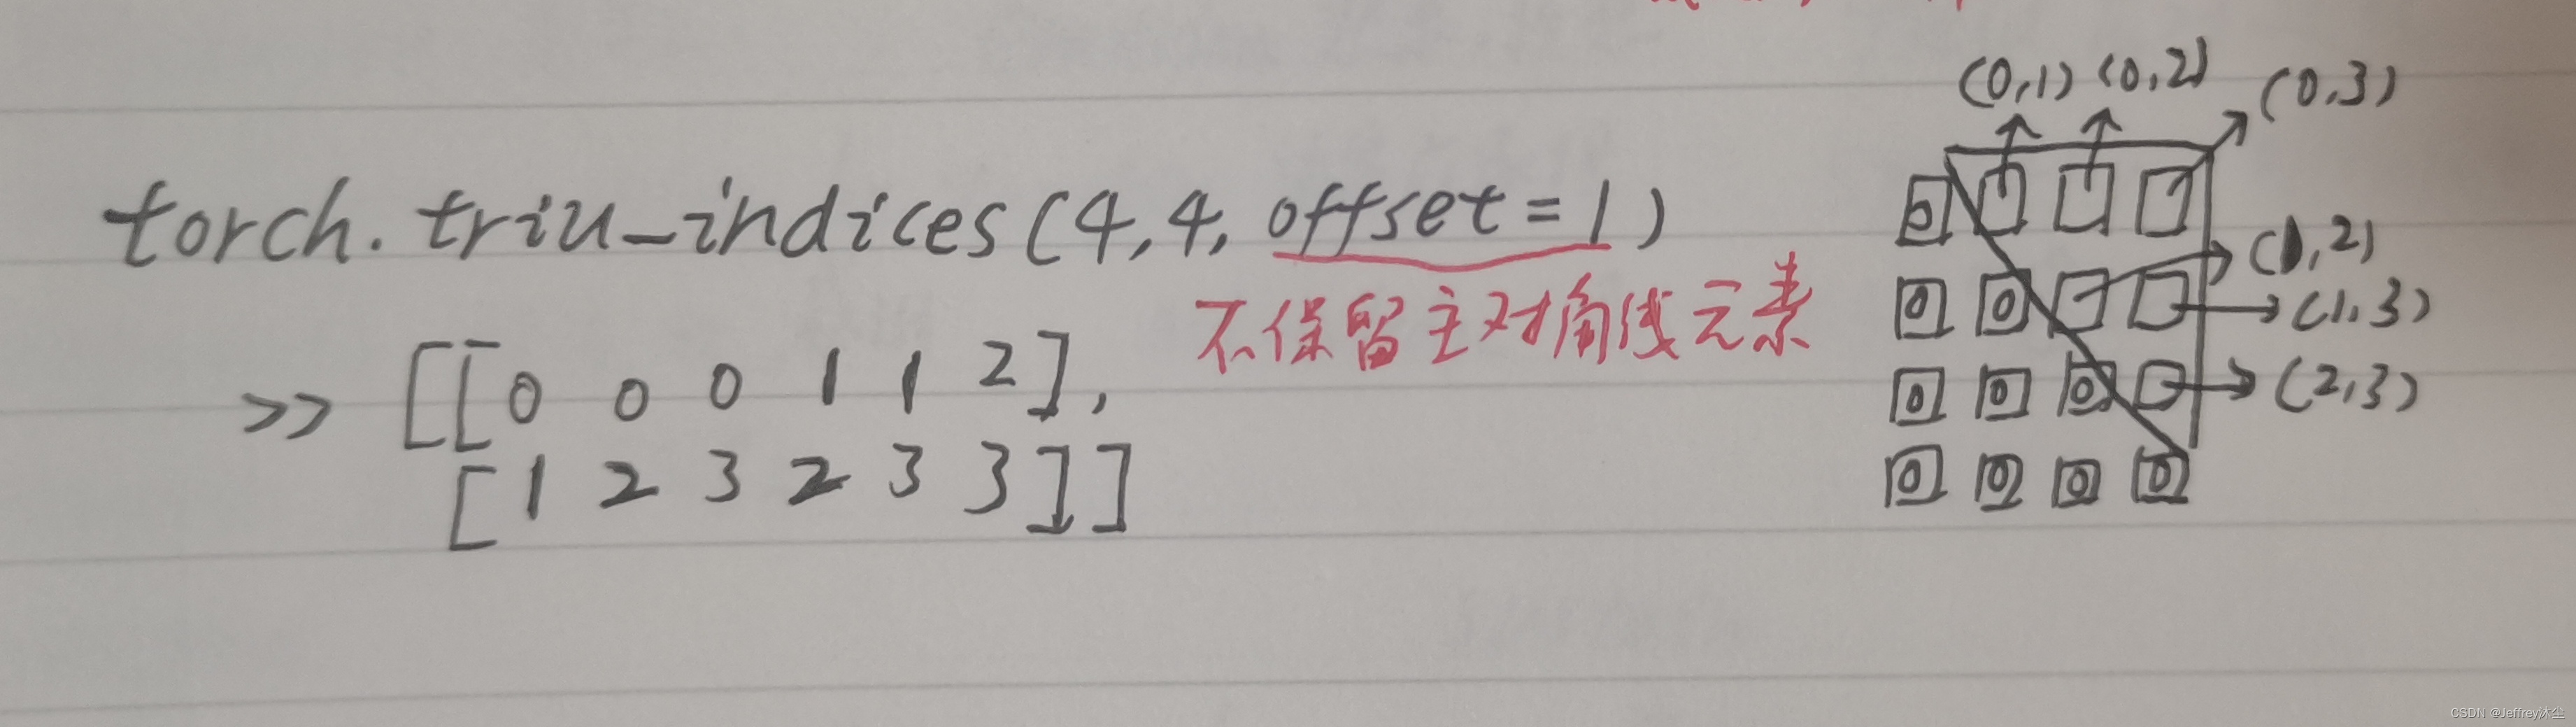 (0,1) (0,2) (0,3)
torch.triu_indices(4,4, offset=1)
不保留主对角线元素
>> [[0 0 0 1 1 2],
[1 2 3 2 3 3]]
0
(1,2)
0 0
(1,3)
0 0 0
(2,3)
0 0 0 0
CSDN @Jeffrey沐尘